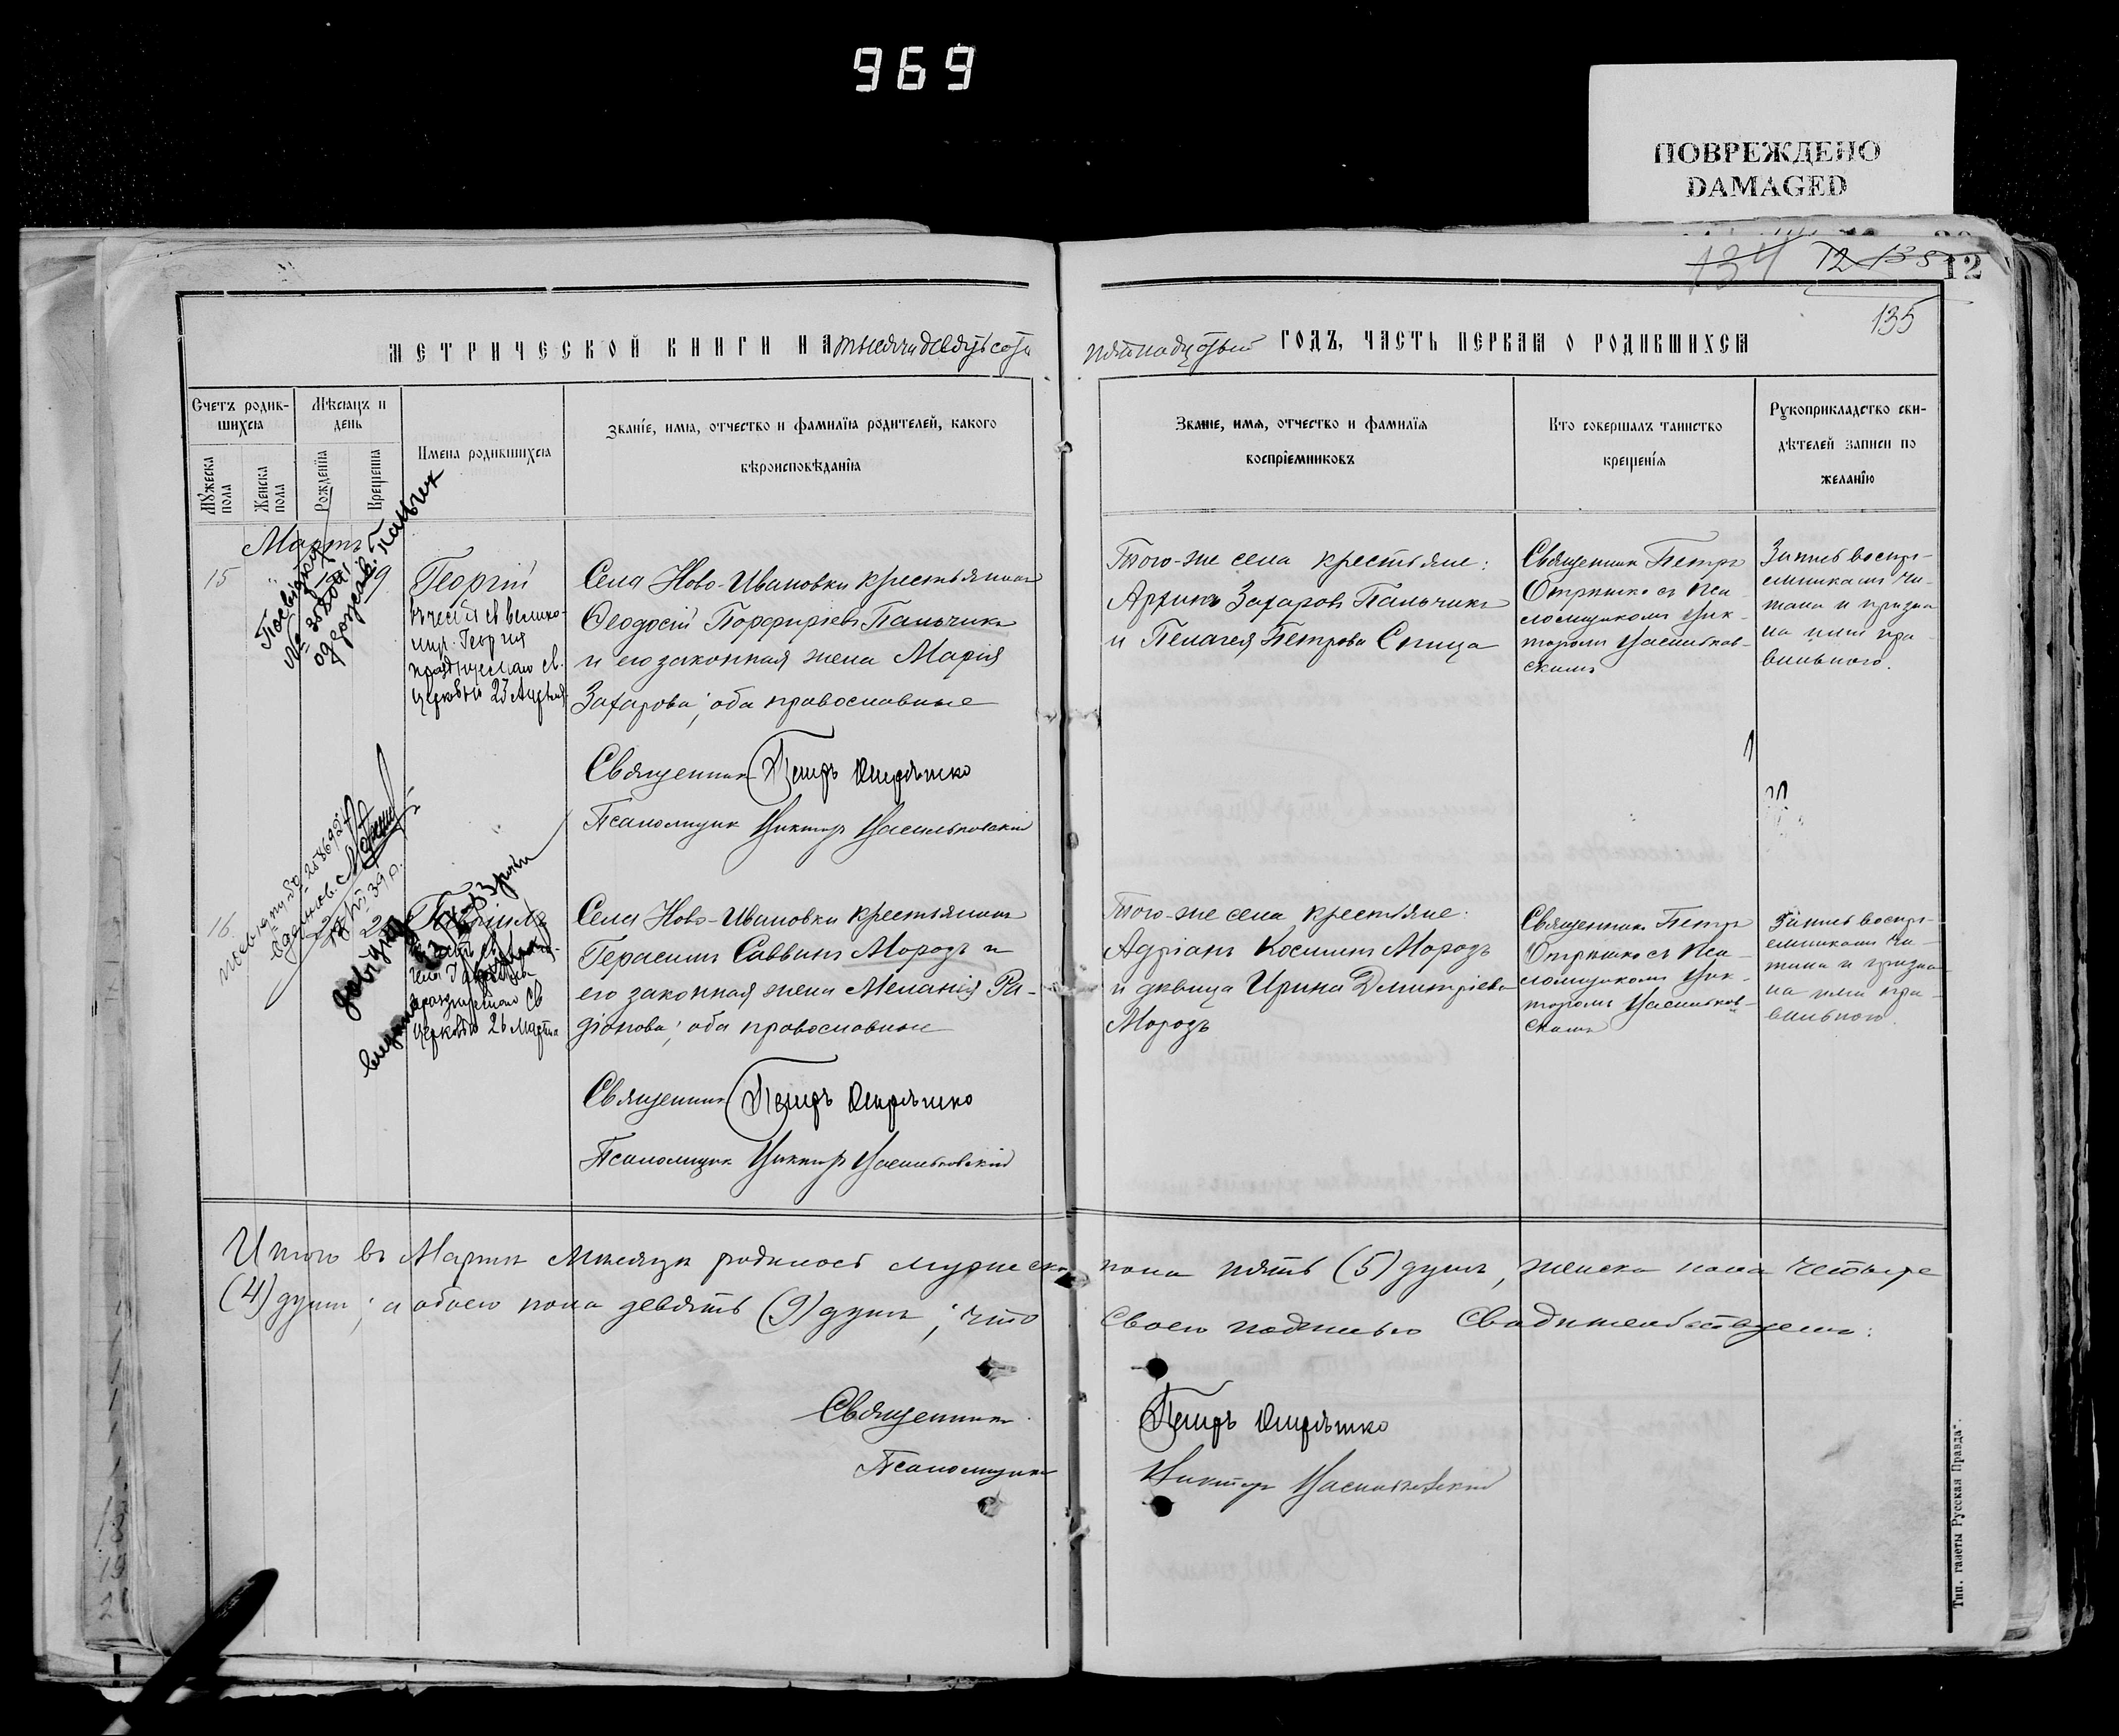 969
ПОВРЕЖДЕНО
DAMAGED
134 12 135
12
135
МЕТРИЧЕСКОЙ КНИГИ НА тысяча девятьсотъ пятнадцатый ГОДЪ, ЧАСТЬ ПЕРВАЯ О РОДИВШИХСЯ
Счетъ родив-
шихся
Мужеска
пола
Женска
пола
Мѣсяцъ и
день
Рожденія
Крещенія
Имена родившихся
Званіе, имя, отчество и фамилія родителей, какого
вѣроисповѣданія
Званіе, имя, отчество и фамилія
воспріемниковъ
Кто совершалъ таинство
крещенія
Рукоприкладство сви-
дѣтелей записи по
желанію
Мартъ
15
9
Посвідку
одержав: Пальчик
Георгій
въ честь св велико-
муч. Георгія
празднуемаго св.
Церковью 23 Апрѣля
Села Ново-Ивановки крестьянинъ
Ѳеодосій Порфиріевъ Пальчикъ
и его законная жена Марія
Захарова; оба православные
Священникъ Петръ Отрѣшко
Псаломщикъ Викторъ Васильковскій
Того-же села крестьяне:
Архипъ Захаровъ Пальчикъ
и Пелагея Петрова Спица
Священникъ Петръ
Отрѣшко съ Пса-
ломщикомъ Вик-
торомъ Васильков-
скимъ
Запись воспрі-
емникамъ чи-
тана и призна-
на ими пра-
вильною.
16
2
Гавріилъ
празднуемаго Св
Церковью 26 Марта
Села Ново-Ивановки крестьянинъ
Герасимъ Саввинъ Морозъ и
его законная жена Меланія Ра-
діонова; оба православные
Священникъ Петръ Отрѣшко
Псаломщикъ Викторъ Васильковскій
Того-же села крестьяне:
Адріанъ Косминъ Морозъ
и дѣвица Ирина Димитріева
Морозъ
Священникъ Петръ
Отрѣшко съ Пса-
ломщикомъ Вик-
торомъ Васильков-
скимъ
Запись воспрі-
емникамъ чи-
тана и призна-
на ими пра-
вильною.
Итого въ Мартѣ мѣсяцѣ родилось мужеска пола пять (5) душъ, женска пола четыре
(4) души; а обоего пола девять (9) душъ; что своею подписью свидѣтельствуемъ:
Священникъ Петръ Отрѣшко
Псаломщикъ Викторъ Васильковскій
Тип. газеты Русская Правда".